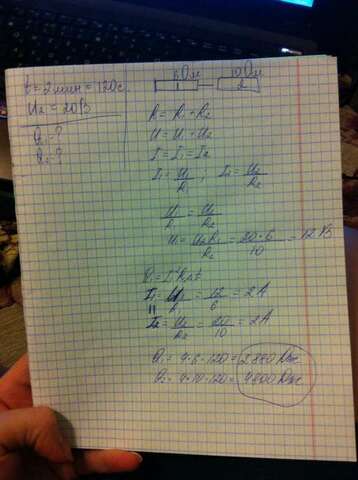 t = 2 мин = 120 с.
U₂ = 20 В
Q₁ - ?
Q₂ - ?
6 Ом 10 Ом
1 2
R = R₁ + R₂
U = U₁ + U₂
I = I₁ = I₂
I₁ = U₁/R₁ ; I₂ = U₂/R₂
U₁/R₁ = U₂/R₂
U₁ = U₂R₁/R₂ = 20·6/10 = 12 В
Q₁ = I²R₁t
I₁ = U₁/R₁ = 12/6 = 2 А
I₂ = U₂/R₂ = 20/10 = 2 А
Q₁ = 4·6·120 = 2 880 Дж
Q₂ = 4·10·120 = 4800 Дж